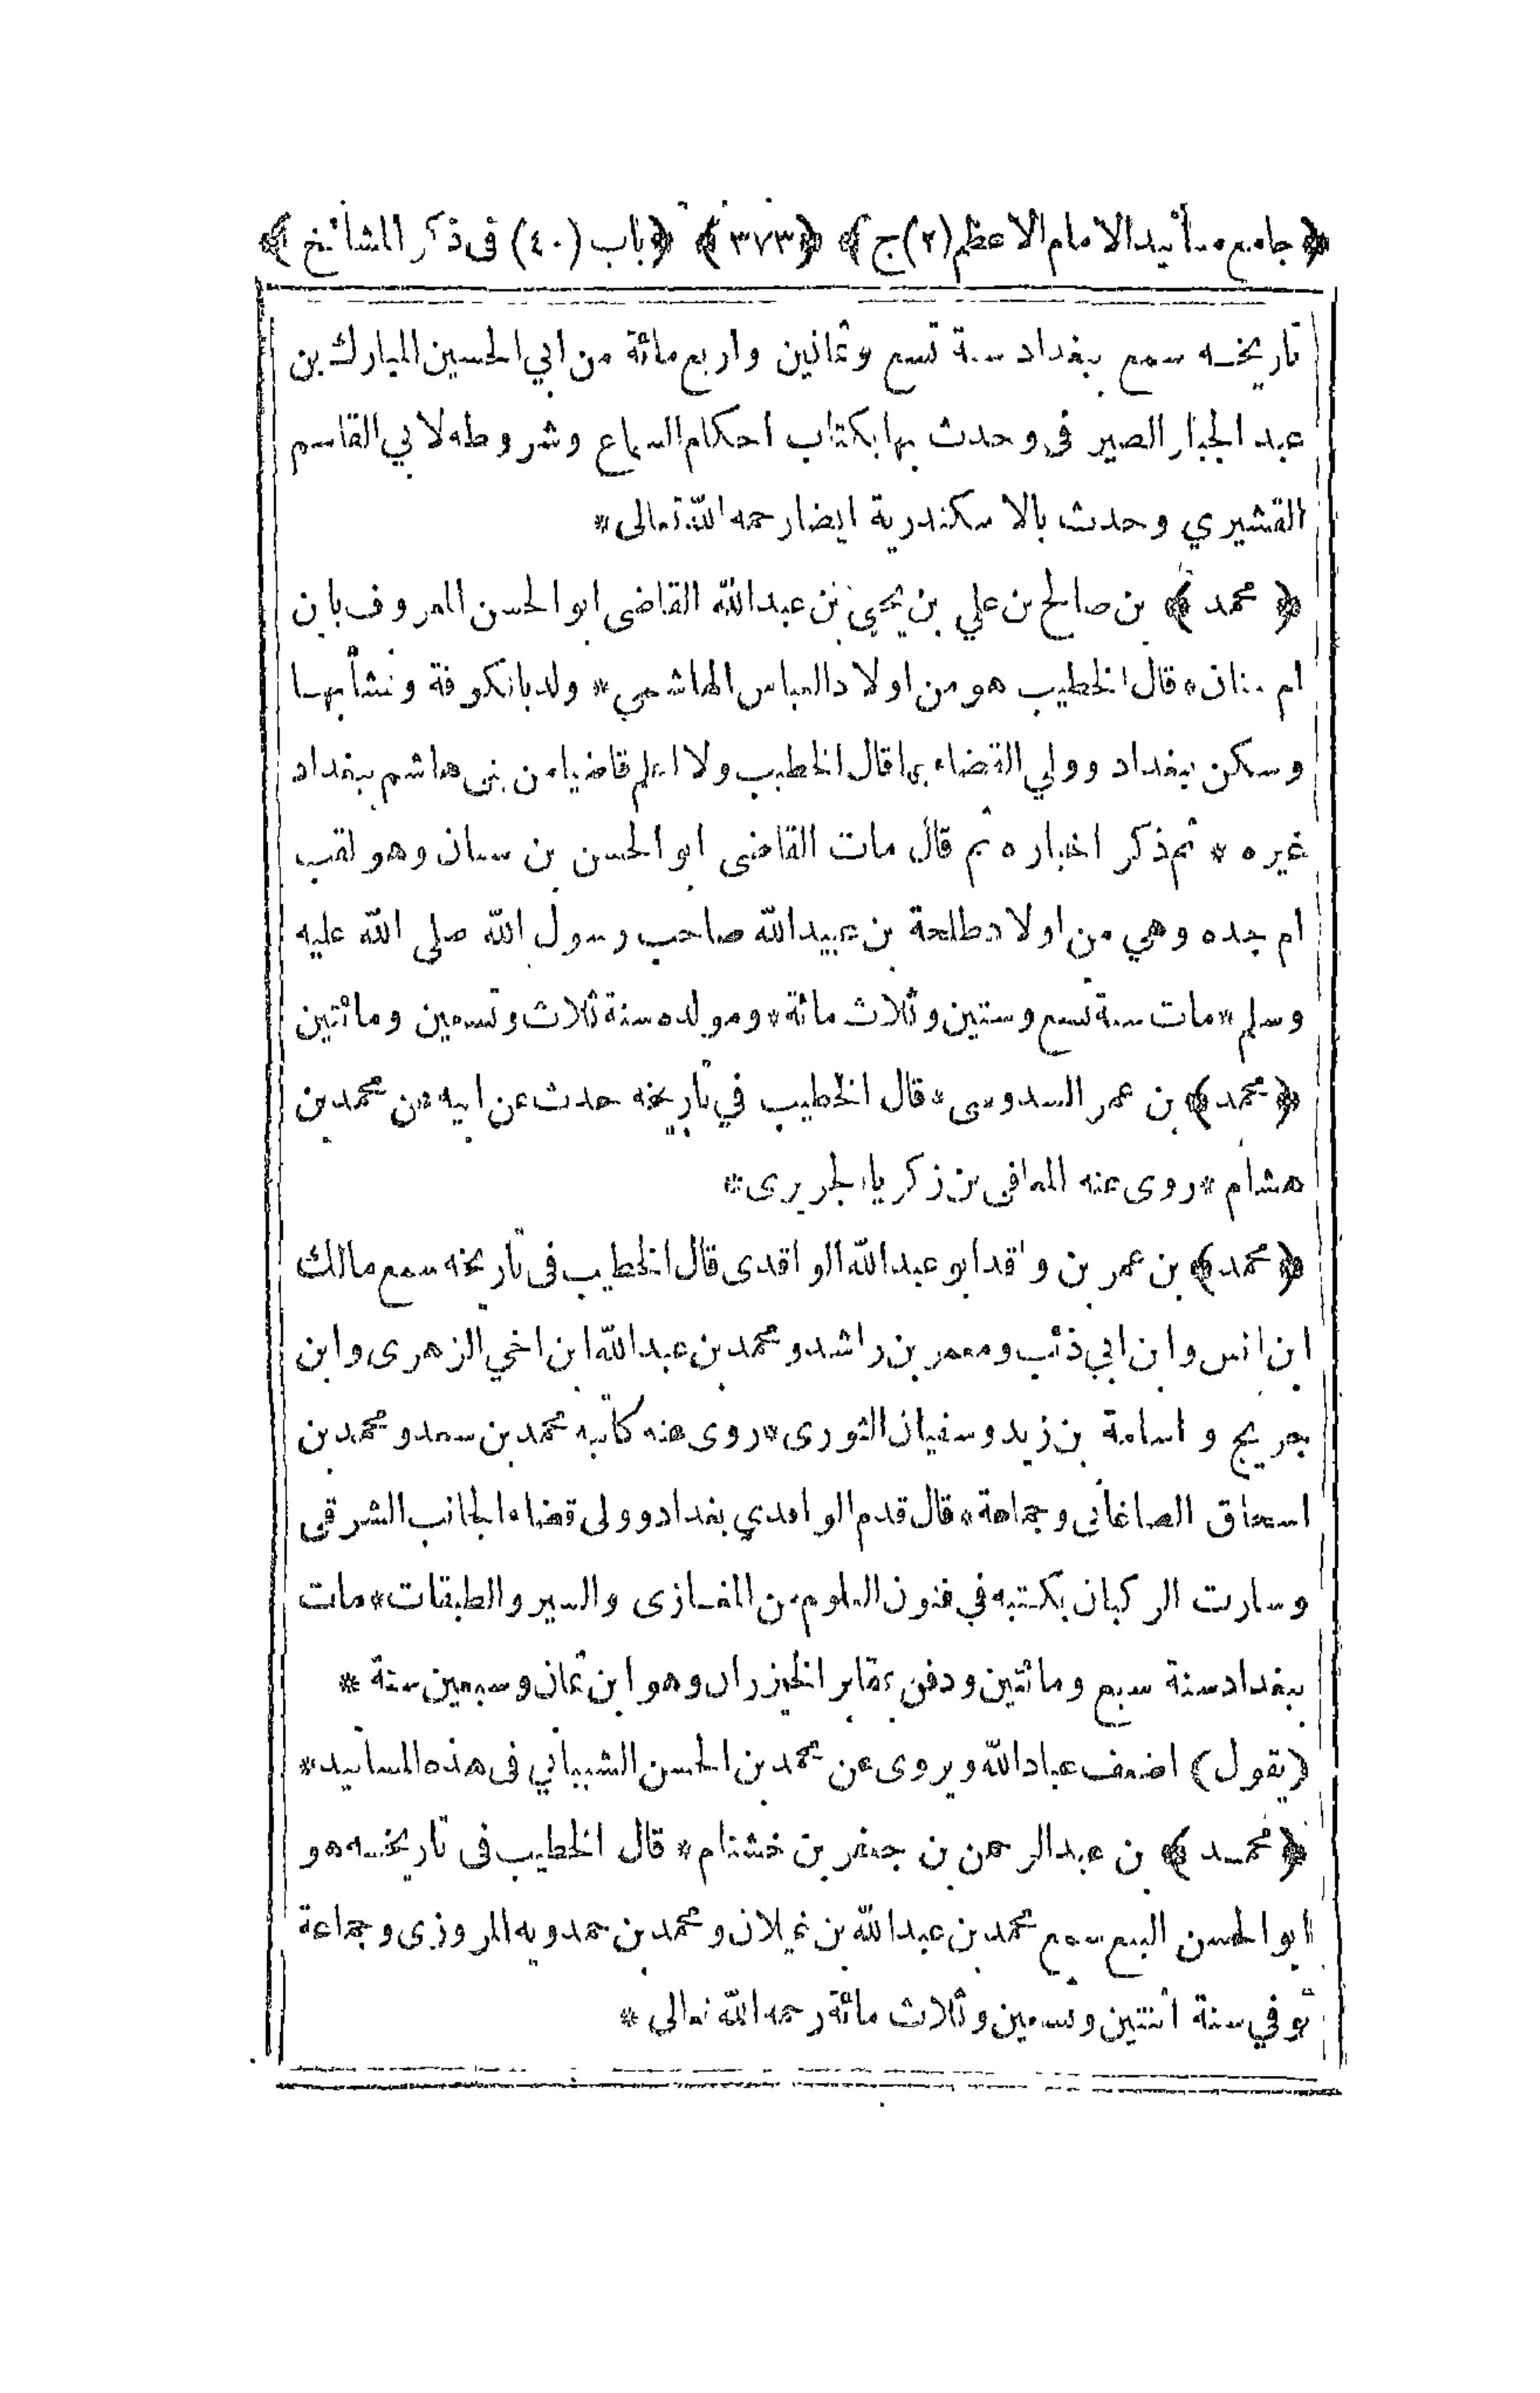 ﴿جامع مسانيد الامام الاعظم (٢) ج﴾ ﴿٣٧٣﴾ ﴿باب (٤٠) فى ذكر المشائخ﴾
تاريخه سمع ببغداد سنة تسع وثمانين واربع مائة من ابي الحسين المبارك بن
عبد الجبار الصير فى وحدث بها بكتاب احكام السماع وشروطه لابي القاسم
القشيري وحدث بالاسكندرية ايضا رحمه الله تعالى *
﴿محمد﴾ بن صالح بن علي بن يحيى بن عبد الله القاضى ابو الحسن المعروف بابن
ام سنان * قال الخطيب هو من اولاد العباس الهاشمي * ولد بالكوفة ونشأ بها
وسكن ببغداد وولي القضاء بها قال الخطيب ولا اعلم قاضيا من بنى هاشم ببغداد
غيره * ثم ذكر اخباره ثم قال مات القاضى ابو الحسن بن سنان وهو لقب
ام جده وهي من اولاد طلحة بن عبيد الله صاحب رسول الله صلى الله عليه
وسلم * مات سنة تسع وستين وثلاث مائة * ومولده سنة ثلاث وتسعين ومائتين
﴿محمد﴾ بن عمر السدوسى * قال الخطيب في تاريخه حدث عن ابيه عن محمد بن
هشام * روى عنه المعافى بن زكريا الجريرى *
﴿محمد﴾ بن عمر بن واقد ابو عبد الله الواقدى قال الخطيب فى تاريخه سمع مالك
ابن انس وابن ابي ذئب ومعمر بن راشد ومحمد بن عبد الله ابن اخي الزهرى وابن
جريج واسامة بن زيد وسفيان الثورى * روى عنه كاتبه محمد بن سعد ومحمد بن
اسحاق الصاغانى وجماعة * قال قدم الواقدي بغداد وولى قضاء الجانب الشرقى
وسارت الركبان بكتبه في فنون العلوم من المغازى والسير والطبقات * مات
ببغداد سنة سبع ومائتين ودفن بمقابر الخيزران وهو ابن ثمان وسبعين سنة *
(يقول) اضعف عباد الله ويروى عن محمد بن الحسن الشيباني فى هذه المسانيد *
﴿محمد﴾ بن عبد الرحمن بن جعفر بن خشنام * قال الخطيب فى تاريخه هو
ابو الحسن البيع سمع محمد بن عبد الله بن غيلان ومحمد بن حمدويه المروزى وجماعة
توفي سنة اثنتين وتسعين وثلاث مائة رحمه الله تعالى *